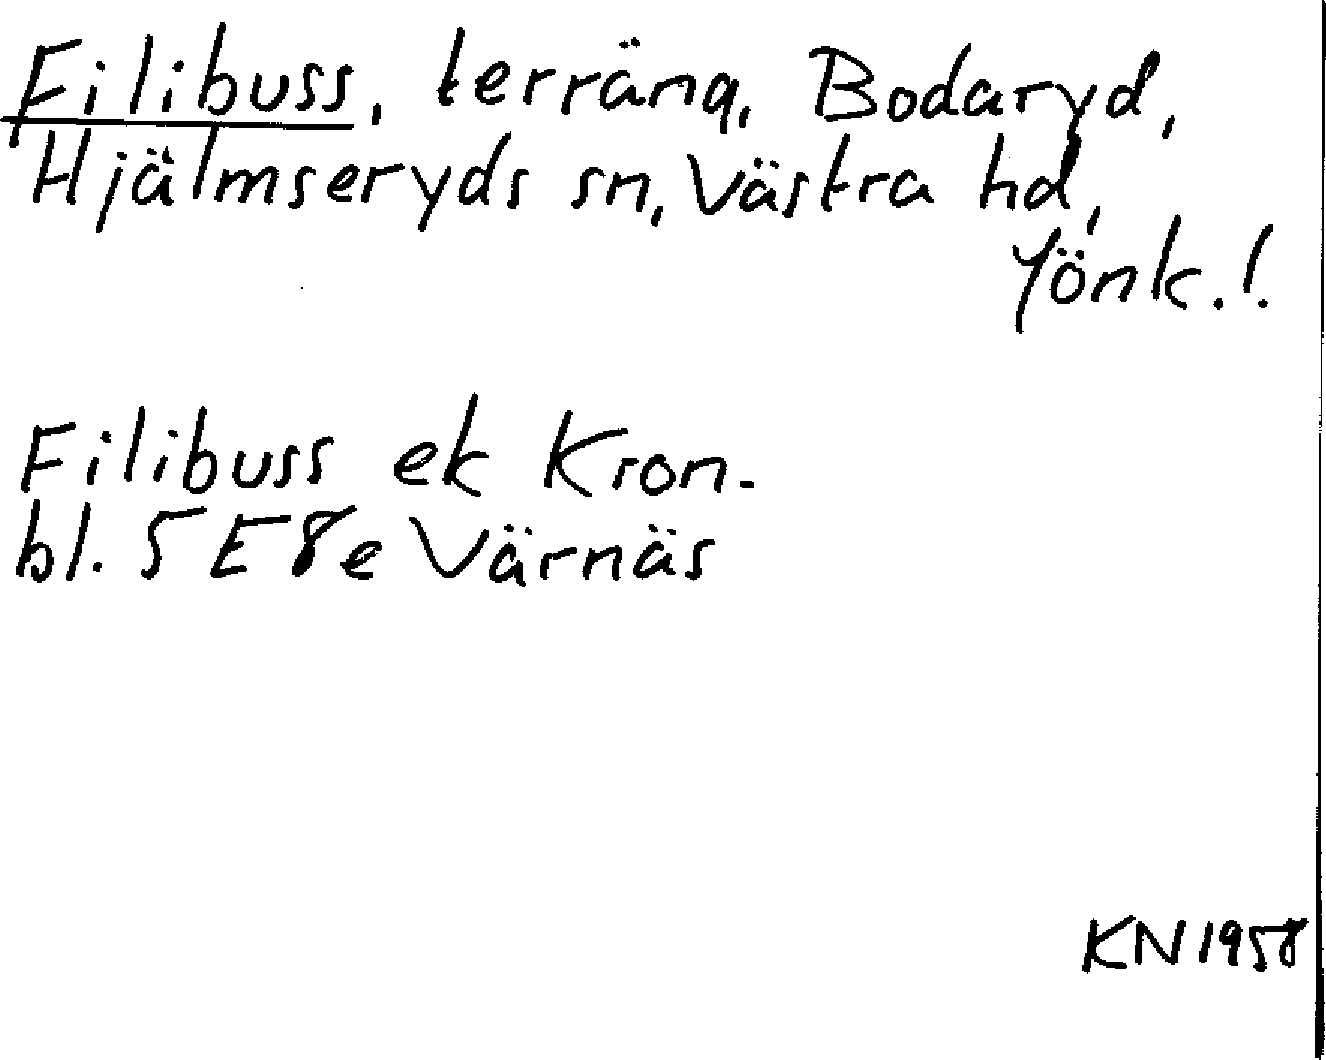 Filibuss, terräng, Bodaryd,
Hjälmseryds sn, Västra hd,
Jönk. l.
Filibuss ek Kron-
bl. 5 E 8e Värnäs
KN 1958